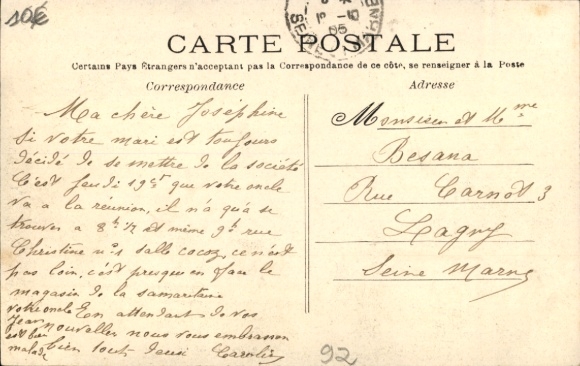 10€
SEINE
05
CARTE POSTALE
Certains Pays Étrangers n'acceptant pas la Correspondance de ce côté, se renseigner à la Poste
Correspondance
Ma chère Joséphine
Si votre mari est toujours
décidé de se mettre de la société
C'est Jeudi 19ct que votre oncle
va a la réunion, il n'a qu'a se
trouver a 8h ½ et même 9h rue
Christine n°1 salle cocoz, ce n'est
pas loin, c'est presque en face le
magasin de la samaritaine
En attendant de vos
nouvelles nous vous embrassons
bien tous deux
votre oncle
Jean
est bien
malade
Adresse
Monsieur et Mme
Besana
Rue Carnot 3
Lagny
Seine Marne
92